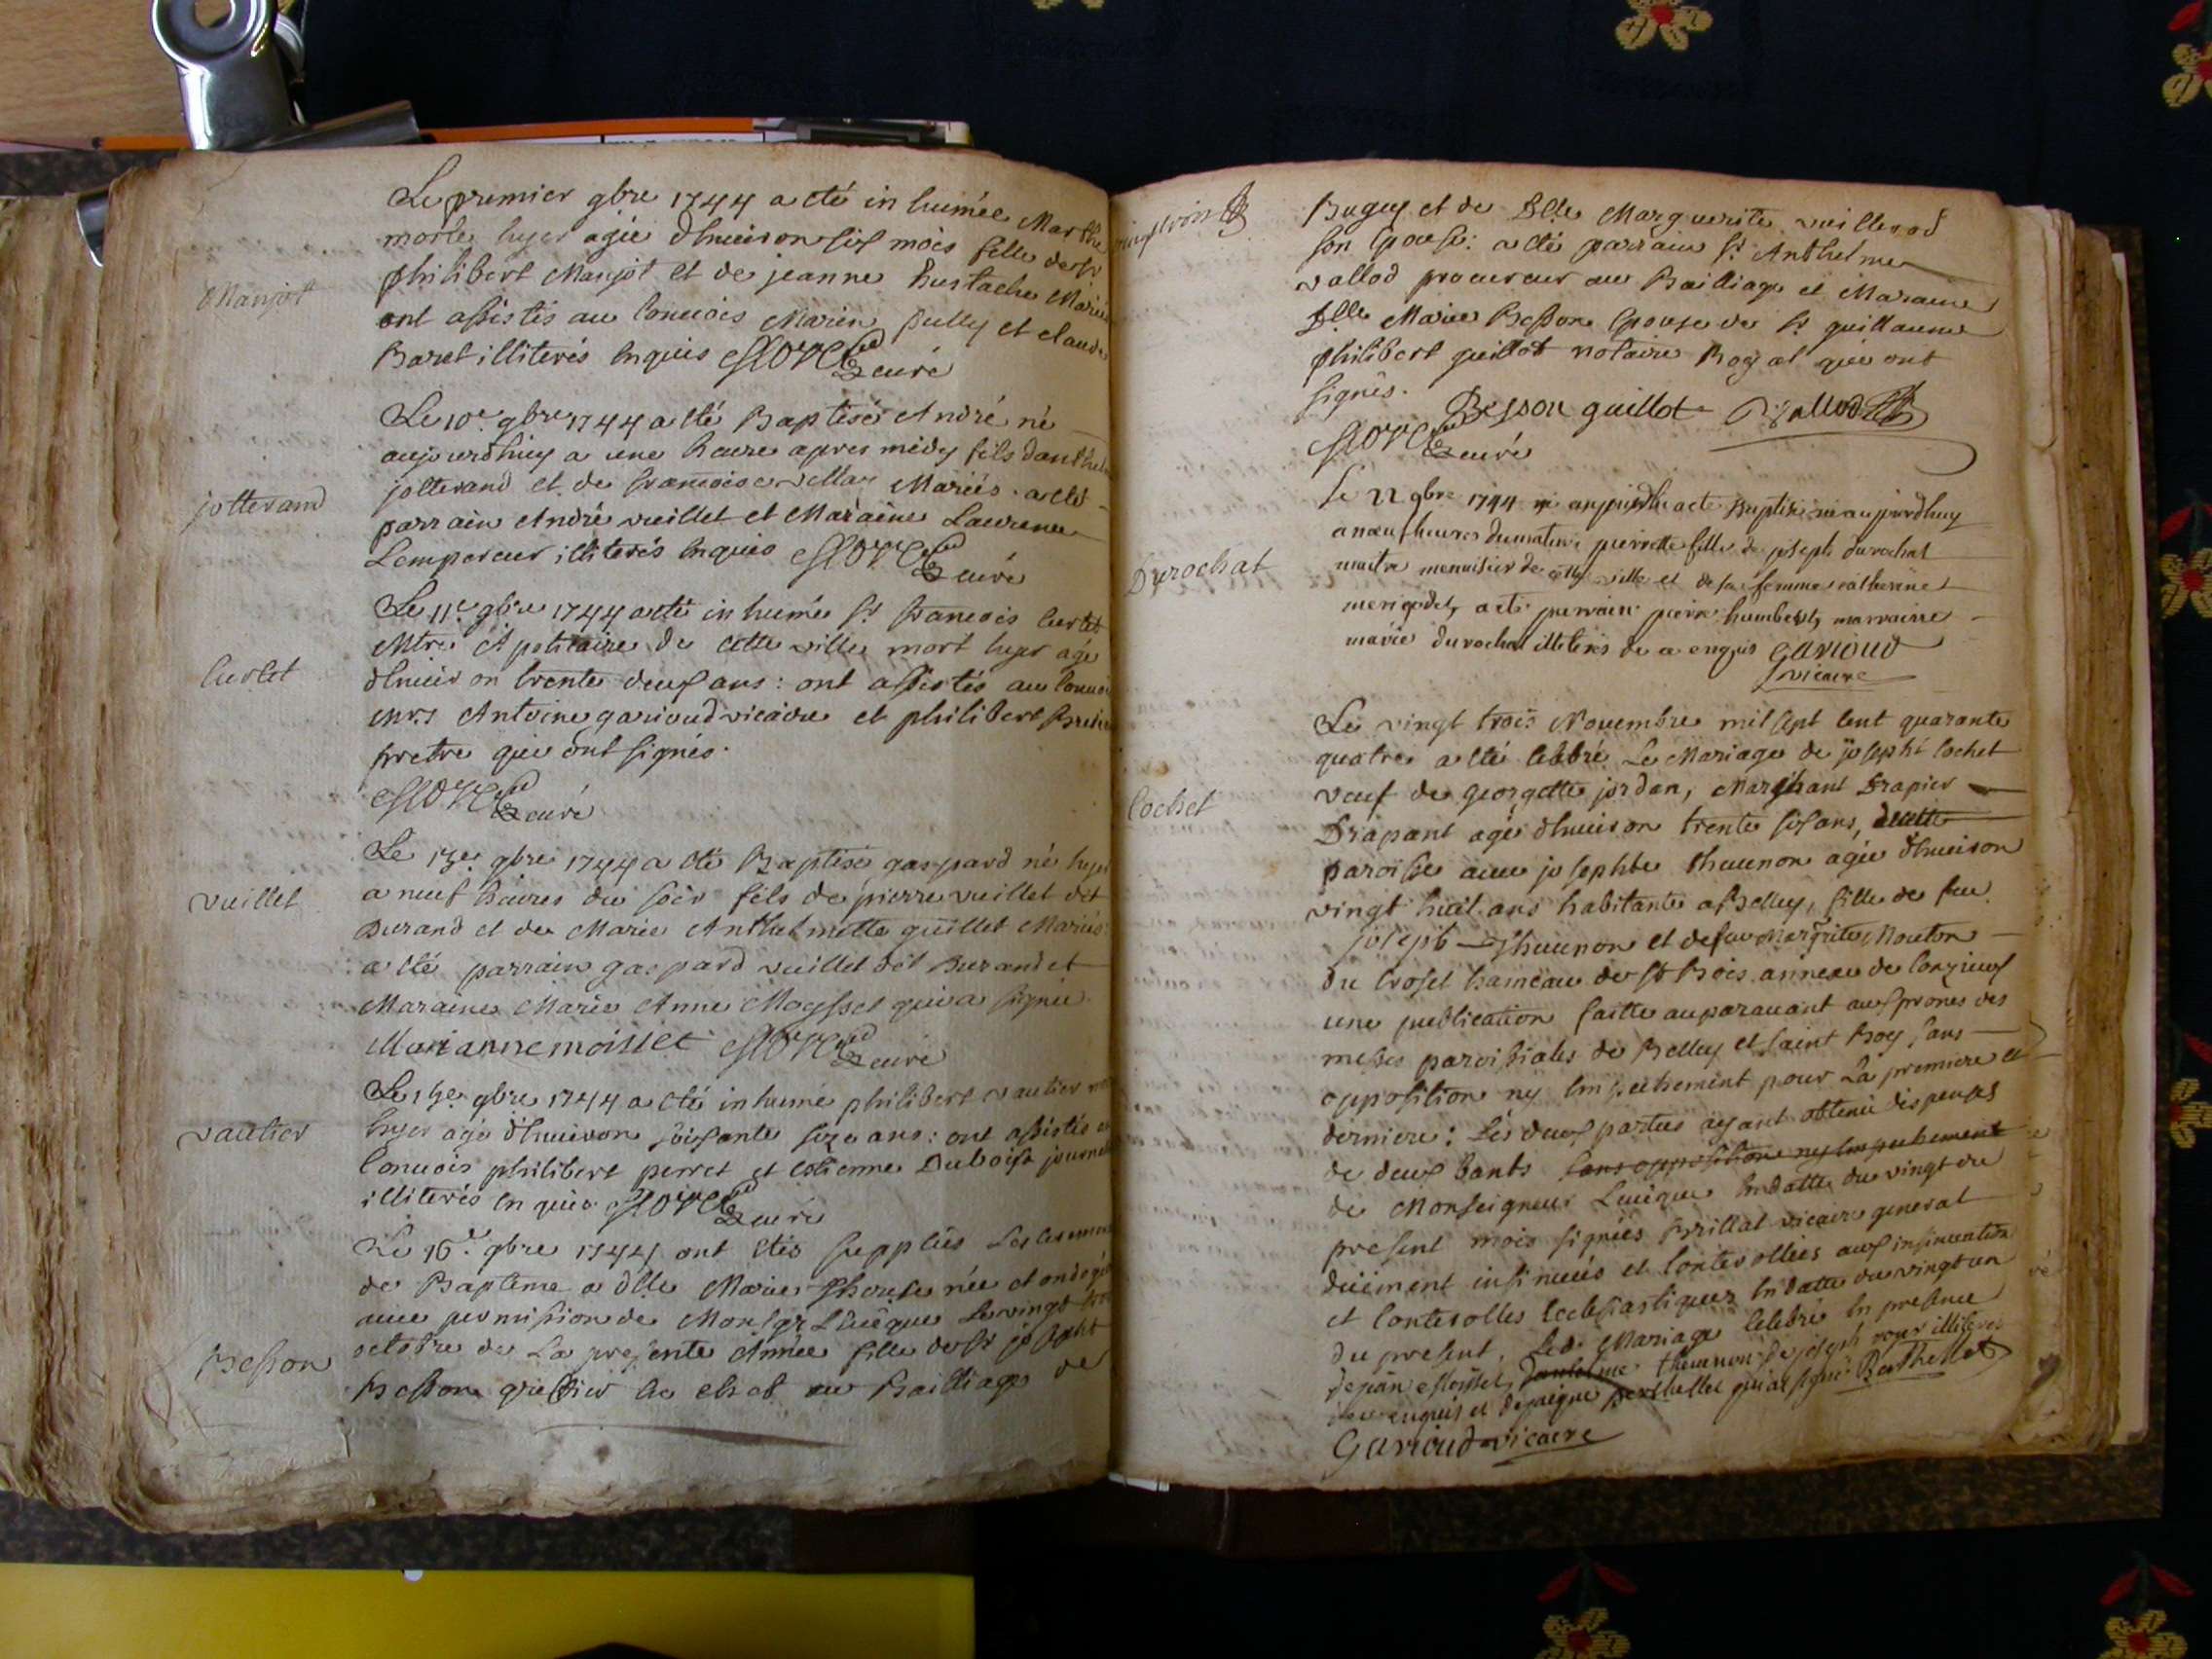 Le premier gbre 1744 a eté in humée Marthe
morte hyer agée dhnuiron six mois fille de sr
Manjot
philibert Manjot et de jeanne Eustache Mariés
ont assistés au Conuois Marin Pully et claude
Baret illiterés Enquis curé
Le 10e gbre 1744 a eté Baptisé André né
aujourdhuy a une heure apres midy fils danthel
jotterand
jotterand et de francoise Mariés a eté
parrain André vuillet et Maraine Laurence
Lempereur illiterés Enquis curé
Le 11e gbre 1744 a eté in humé sr francois Curtet
Curtet
Mtre Apoticaire de Cette ville mort hyer agé
dhnuiron trente deux ans : ont assistés au Conuoi
mrs Antoine garioud vicaire et philibert
pretre qui ont signés.
curé
Le 13e gbre 1744 a eté Baptisé gaspard né hyer
vuillet
a neuf heures du soir fils de pierre vuillet dit
Durand et de Marie Anthelmette guillet Mariés
a eté parrain gaspard vuillet dit Durand et
Maraine Marie Anne Moysset qui a signée
Marianne moisset curé
Le gbre 1744 a eté in humé philibert vautier
vautier
hyer agé dhnuiron soixante seze ans : ont assistés
Conuois philibert perret et Estienne Dubois
illiterés Enquis curé
Le 16e gbre 1744 ont etés supplées Les
de Baptême a dlle Marie Therese née et ondoyée
auec permission de Monsgr LEuêque Le vingt
Besson
octobre de La presente Année fille de sr joseph
Besson greffier En chef au Bailliage de
Bugey et de Dlle Marguerite
son Epouse : a eté parrain sr Anthelme
vallod procureur au Bailliage et Maraine
Dlle Marie Besson Epouse de sr guillaume
philibert guillot notaire Royal qui ont
signés.
Besson guillot Vallod
curé
le 22 gbre 1744 a eté Baptisée née aujourdhuy
a neuf heures du matin pierrette fille de joseph durochat
Durochat
maitre menuisier de cette ville et de sa femme catherine
a eté parrain pierre humbert, marraine
marie durochat illiterés de ce enquis garioud
vicaire
Le vingt trois Nouembre mil sept Cent quarante
quatre a eté Celebré Le Mariage de joseph Cochet
Cochet
veuf de georgette jordan, Marchant Drapier
Drapant agé dhnuiron trente six ans,
paroisse auec josephte Thaunon agée dhnuiron
vingt huit ans habitante a Belley, fille de feu
joseph Thaunon et de feu Margrite Mouton
du Croset hameau de St Bois anneau de Conzieux
une publication faitte auparauant aux prones des
messes paroissiales de Belley et saint Boy, sans
opposition ny Empechement pour La premiere et
derniere : Les deux parties ayant obtenu dispenses
de deux bants sans opposition ny Empechement
de Monseigneur Leuêque En datte du vingt du
present mois signées Brillat vicaire general
duëment insinuées et Controllées aux insinuation
et Controlles Ecclesiastiques En datte du vingt un
du present, Led. Mariage Celebré En presence
thaunon de joseph illiterés
enquis et berthellet qui a signé Berthellet
Garioud vicaire